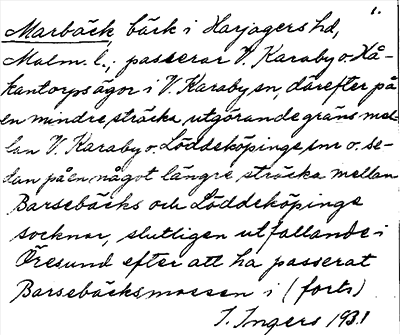 1.
Marbäck, bäck i Harjagers hd,
Malm. l.; passerar V. Karaby o. Hå-
kantorps ägor i V. Karaby sn, därefter på
en mindre sträcka utgörande gräns mel-
lan V. Karaby o. Löddeköpinge snr o. se-
dan på en något längre sträcka mellan
Barsebäcks och Löddeköpinge
socknar, slutligen utfallande i
Öresund efter att ha passerat
Barsebäcksmossen i (forts)
I. Ingers 1931